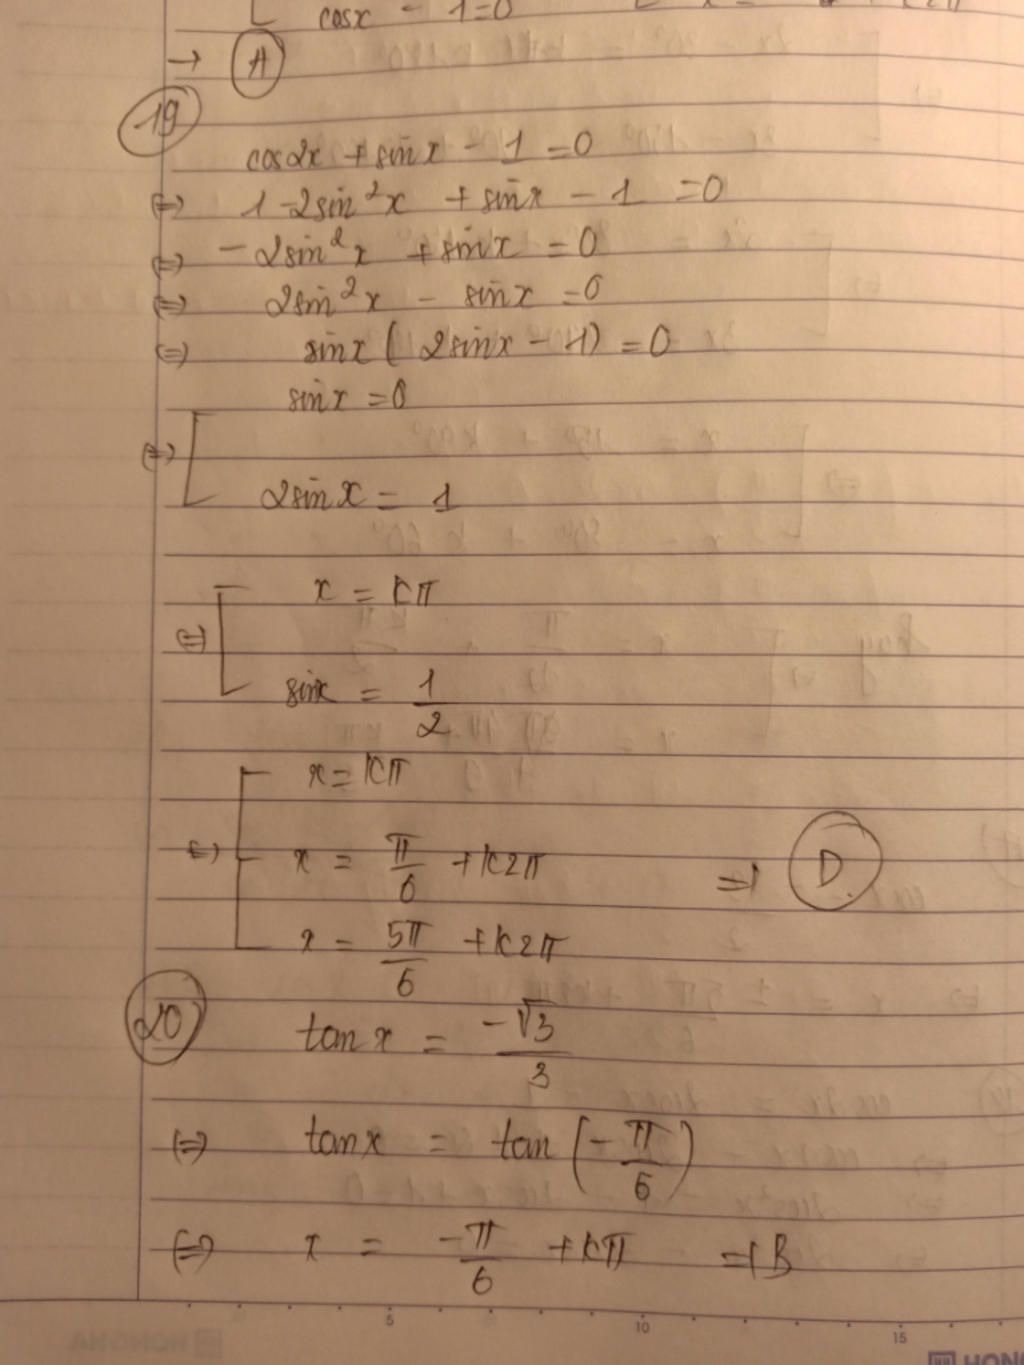 cosx - 1=0
→ A
19
cos2x + sinx - 1 = 0
⇔ 1 - 2sin²x + sinx - 1 = 0
⇔ -2sin²x + sinx = 0
⇔ 2sin²x - sinx = 0
⇔ sinx ( 2sinx - 1) = 0
sinx = 0
⇔ [
2sinx = 1
x = kπ
⇔ [
sinx = 1/2
x = kπ
⇔ [ x = π/6 + k2π ⇒ D
x = 5π/6 + k2π
20 tanx = -√3/3
⇔ tanx = tan (-π/6)
⇔ x = -π/6 + kπ ⇒ B
5 10 15